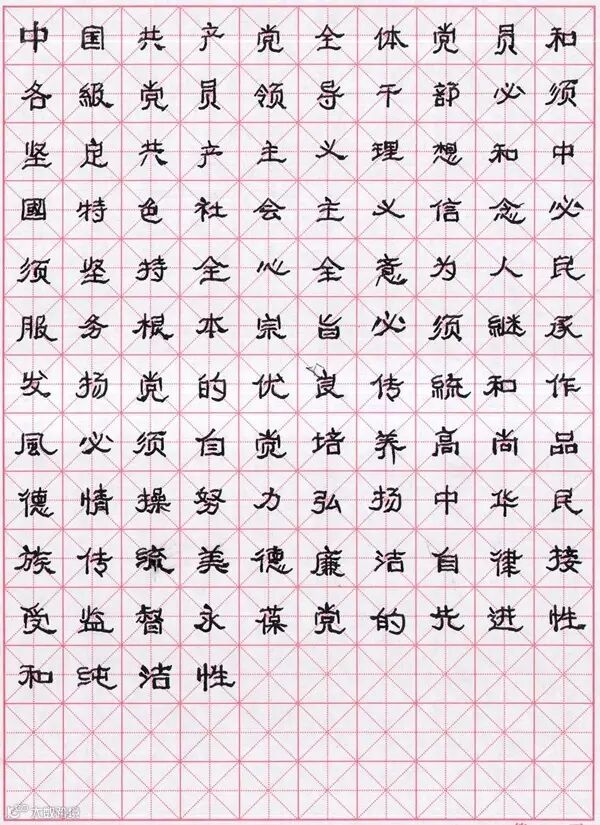 中国共产党全体党员和
各級党员领导干部必须
坚定共产主义理想和中
國特色社会主义信念必
须坚持全心全意为人民
服务根本宗旨必须継承
发扬党的优良传統和作
風必须自觉培养高尚品
德情操努力弘扬中华民
族传统美德廉洁自律接
受监督永葆党的先进性
和纯洁性